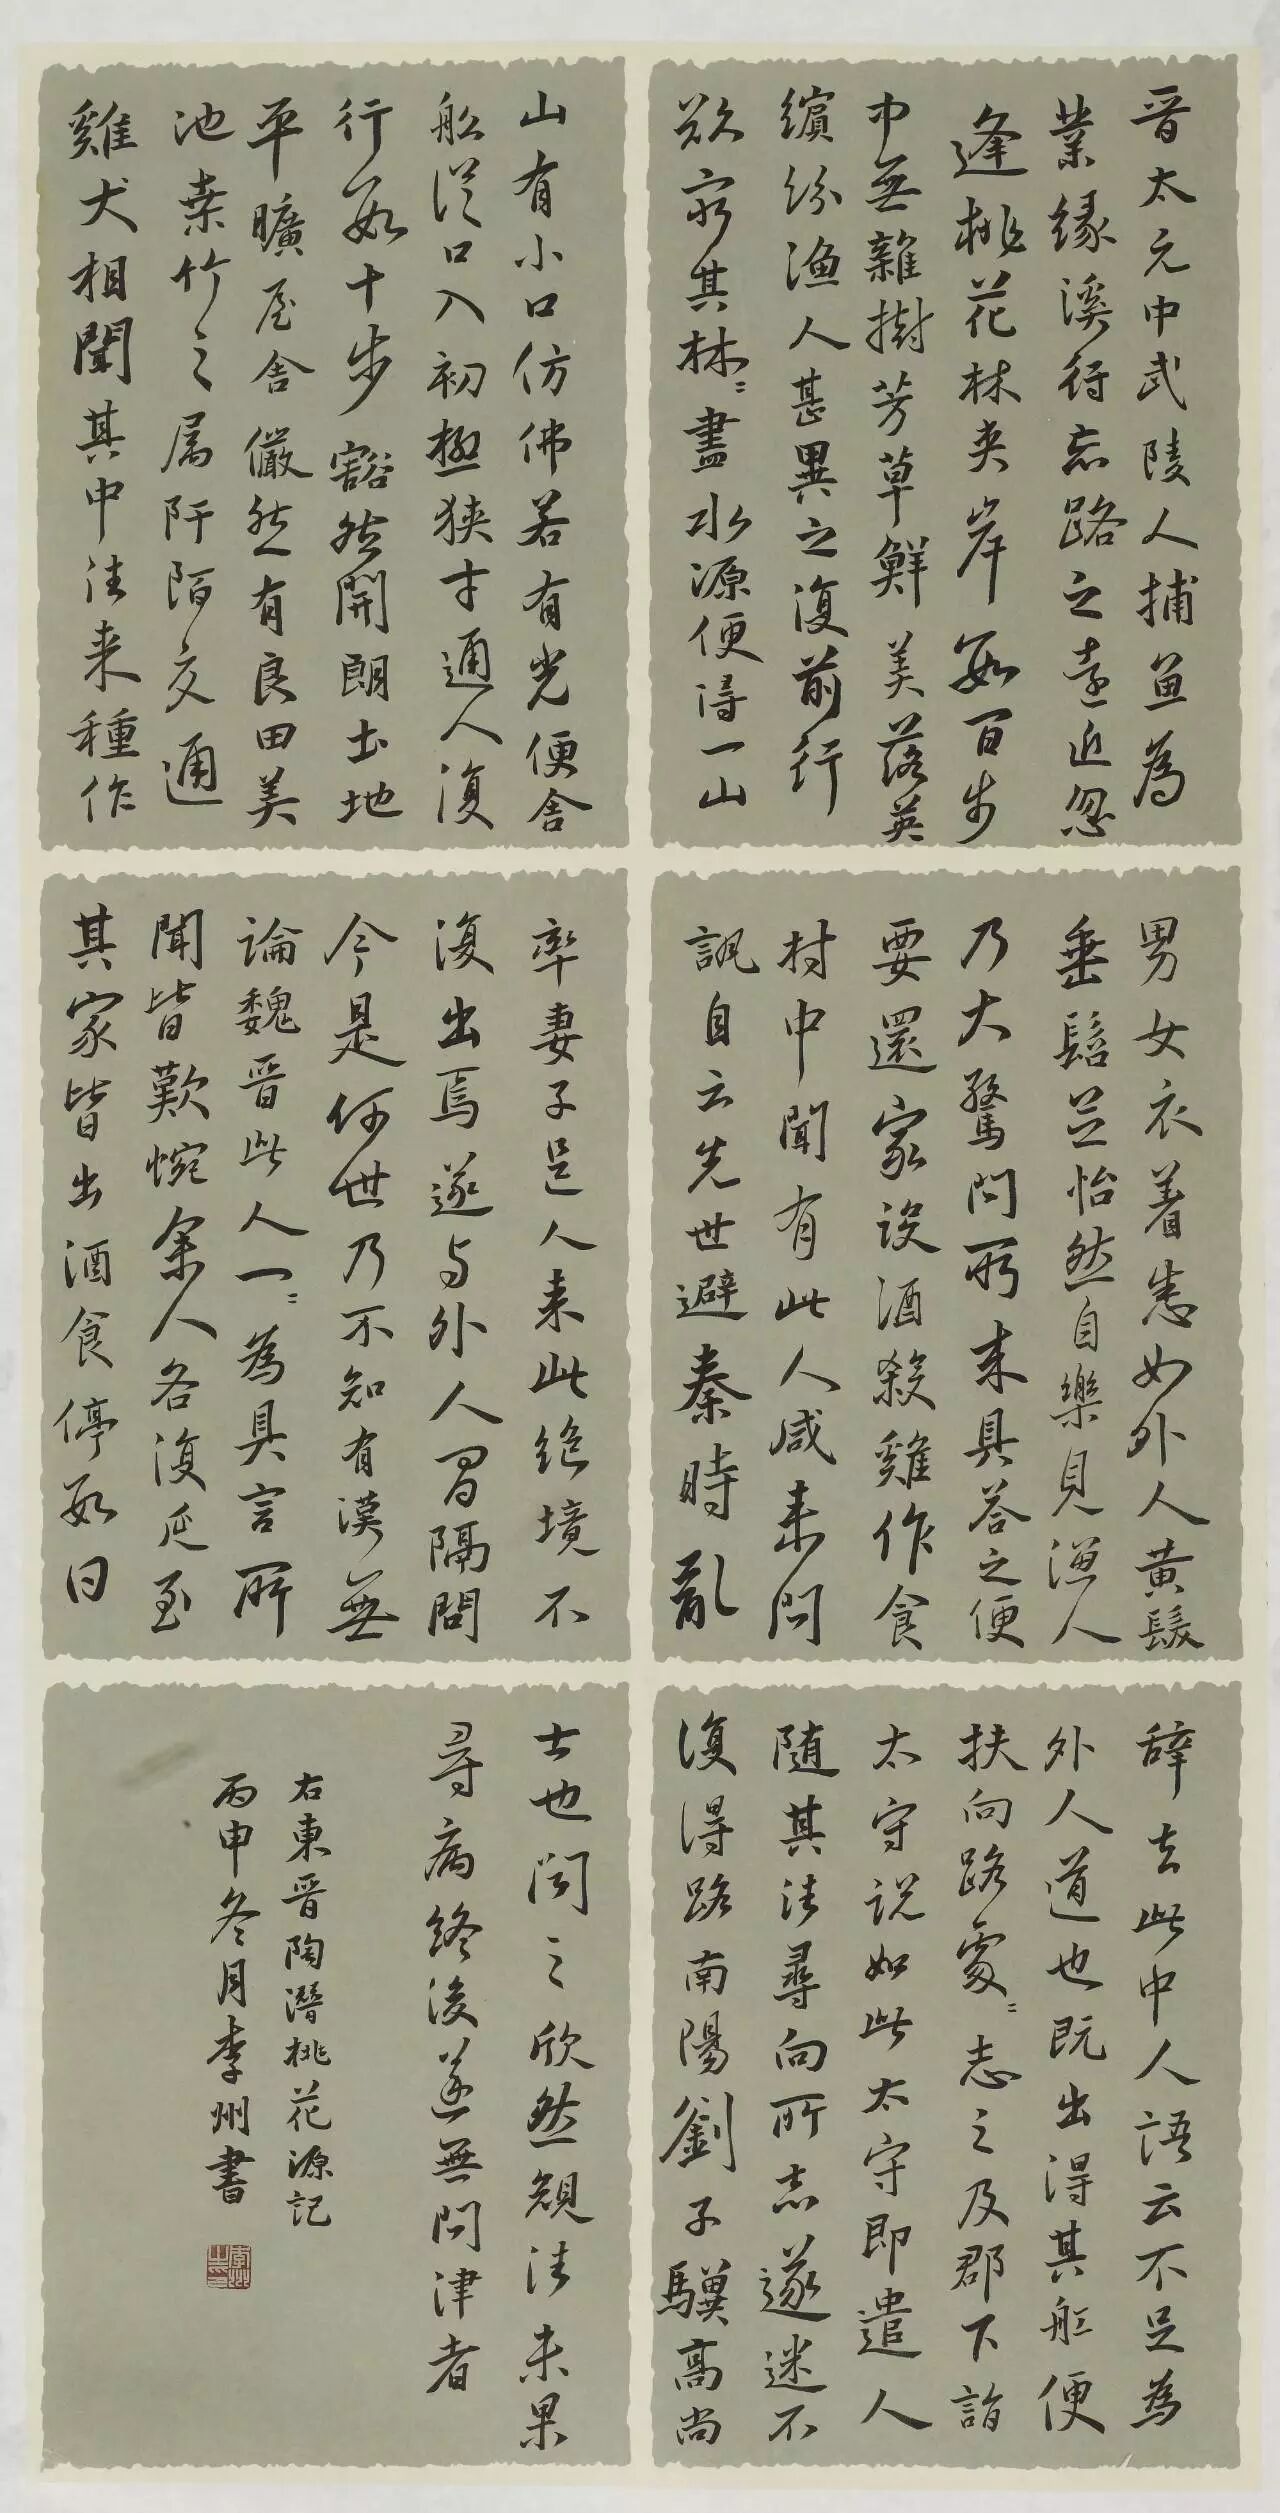 晋太元中武陵人捕鱼為
業缘溪行忘路之遠近忽
逢桃花林夹岸数百步
中無雜樹芳草鮮美落英
繽纷渔人甚異之復前行
欲窮其林〻盡水源便得一山
山有小口仿佛若有光便舍
船從口入初極狭才通人復
行数十步豁然開朗土地
平曠屋舍儼然有良田美
池桑竹之属阡陌交通
雞犬相聞其中往来種作
男女衣着悉如外人黄髮
垂髫並怡然自樂見漁人
乃大驚問所来具答之便
要還家设酒殺雞作食
村中聞有此人咸来問
訊自云先世避秦時亂
率妻子邑人来此絶境不
復出焉遂与外人間隔問
今是何世乃不知有漢無
論魏晋此人一〻為具言所
聞皆歎惋余人各復延至
其家皆出酒食停数日
辞去此中人語云不足為
外人道也既出得其船便
扶向路處〻志之及郡下詣
太守说如此太守即遣人
随其往尋向所志遂迷不
復得路南陽劉子驥高尚
士也聞之欣然規往未果
尋病終後遂無問津者
右東晋陶潛桃花源記
丙申冬月李州書